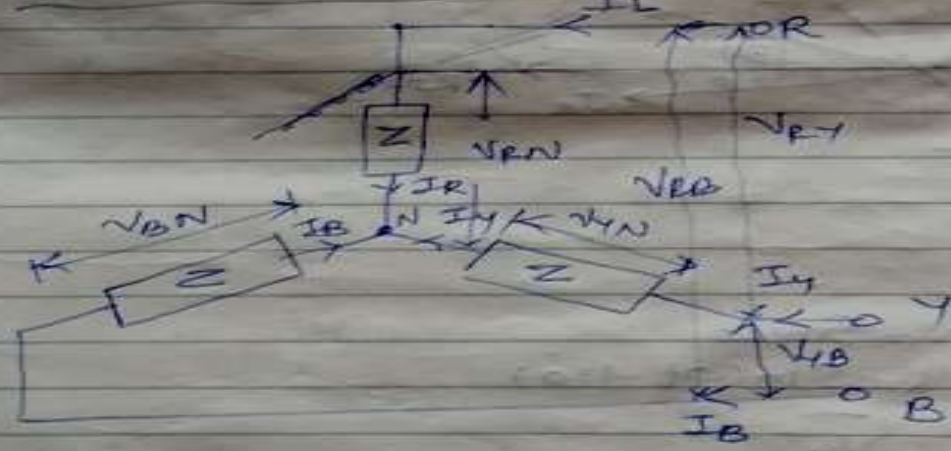 IL
R
Z
VRN
VRY
IR
VRB
VBN
IB
N
IY
VYN
Z
Z
IY
Y
VYB
IB
B